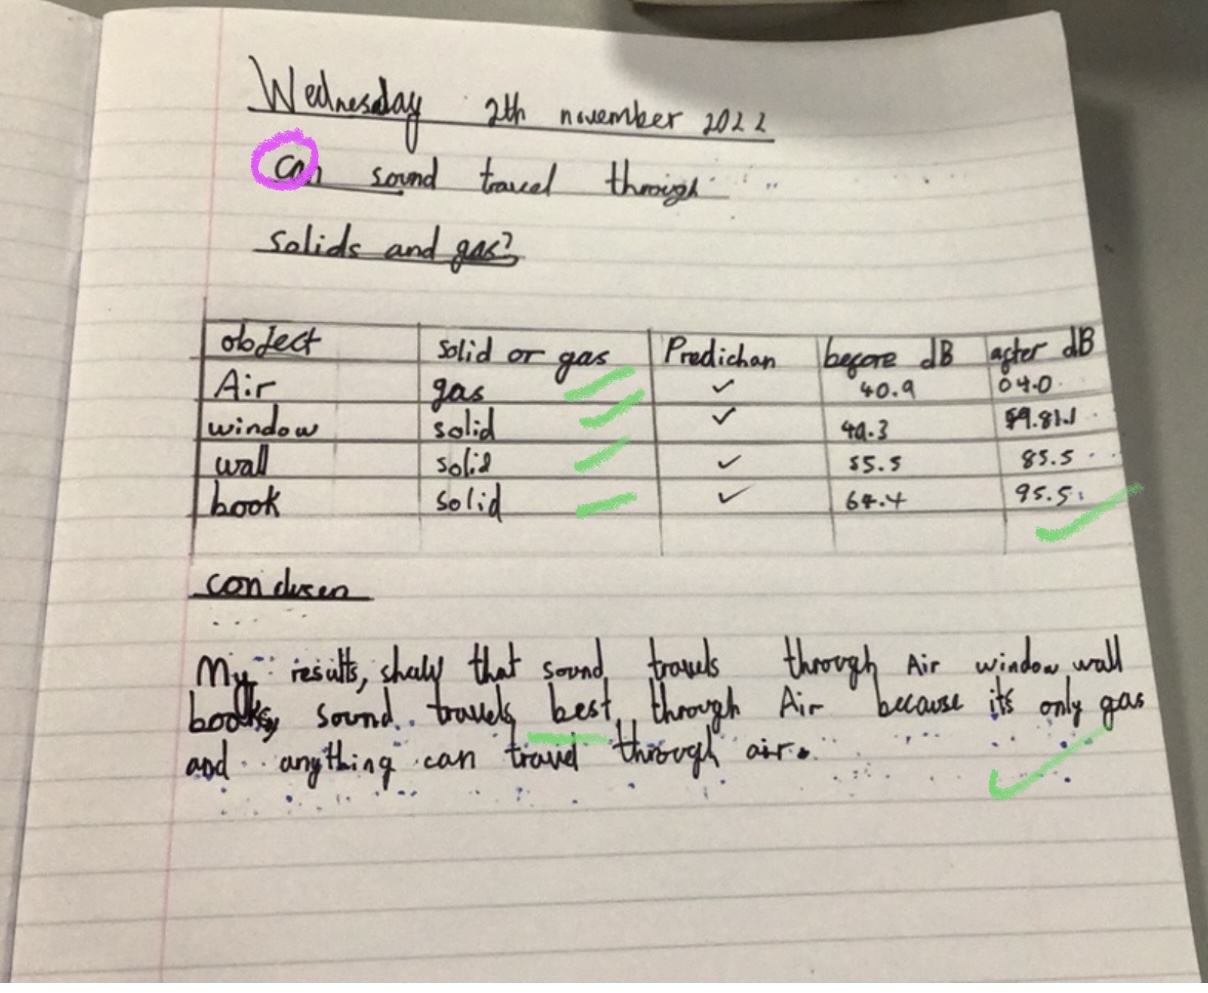 Wednesday 2th november 2022
Can sound travel through
solids and gas?
object solid or gas Predichan before dB after dB
Air gas ✓ 40.9 04.0
window solid ✓ 40.3
wall solid ✓ 55.5 85.5
book solid ✓ 64.4 95.5
conclusen
My results, show that sound travels through Air window wall
books, sound travels best through Air because its only gas
and anything can travel through air.